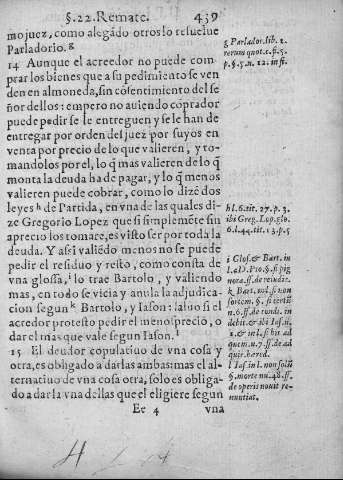 §.22. Remate. 439
mo juez, como alegādo otros lo resuelue
Parladorio. g
14 Aunque el acreedor no puede com-
prar los bienes que a su pedimiento se ven
den en almoneda, sin cōsentimiento del se
ñor dellos: empero no auiendo cōprador
puede pedir se le entreguen y se le han de
entregar por orden del juez por suyos en
venta por precio de lo que valieren, y to-
mandolos por el, lo q̄ mas valieren de lo q̄
monta la deuda ha de pagar, y lo q̄ menos
valieren puede cobrar, como lo dizē dos
leyes h de Partida, en vna de las quales di-
ze Gregorio Lopez que si simplemēte sin
aprecio los tomare, es visto ser por toda la
deuda. Y assi valiēdo menos no se puede
pedir el residuo y resto, como consta de
vna glossa, i lo trae Bartolo, y valiendo
mas, en todo se vicia y anula la adjudica-
cion segun k Bartolo, y Iason: saluo si el
acreedor protesto pedir el menosprecio, o
dar el mas que vale segun Iason. l
15 El deudor copulatiuo de vna cosa y
otra, es obligado a darlas ambas: mas el al-
ternatiuo de vna cosa otra, solo es obliga-
do a dar la vna dellas que el eligiere segun
Ee 4 vna
g Parlador. lib. 2.
rerum quot. c. fi. 5.
p. §. 5. n. 12. in fi.
h l. 6. tit. 27. p. 3.
ibi Greg. Lop. glo.
6. l. 44. tit. 13. p. 5
i Glos. & Bart. in
l. a D. Pio. §. si pig
nora. ff. de re iudic.
k Bart. in l. si non
sortem. §. si centū
n. 6. ff. de condi. in
debit. & ibi Ias. n.
1. & in l. si bis ad
quem n. 7. ff. de ad
quir. hered.
l Ias. in l. non solū
§. morte nu. 48. ff.
de operis nouit re-
nuntiat.